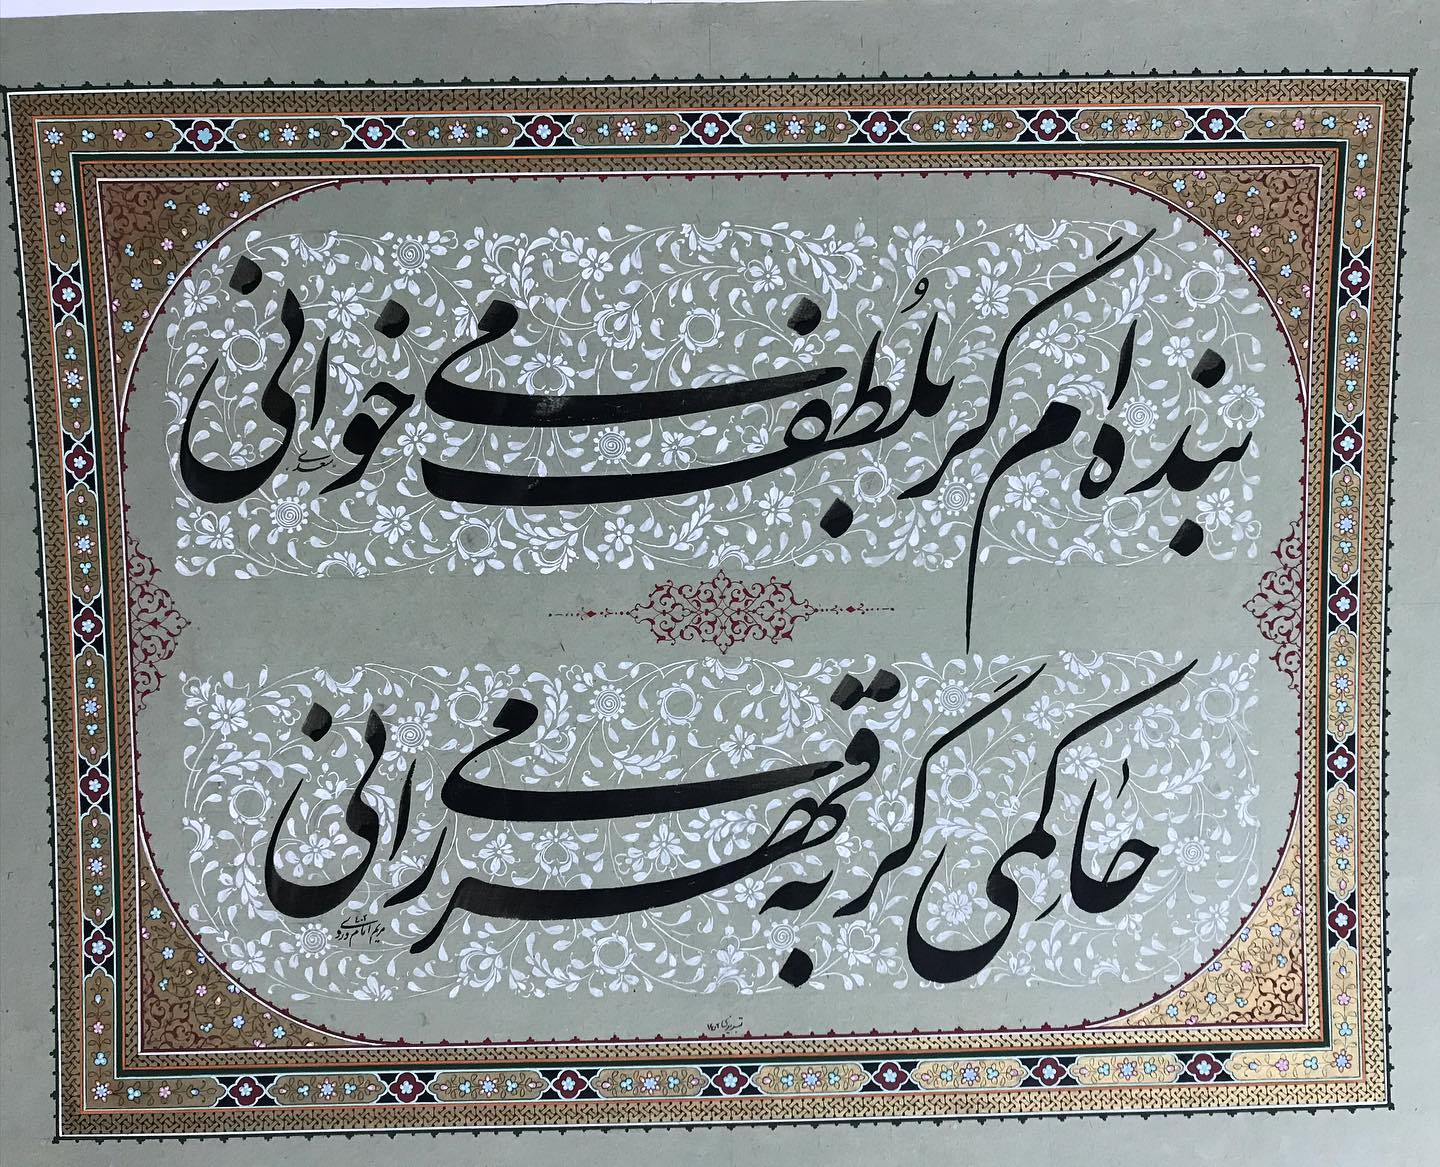 بنده ام گر بلُطف می خوانی
سعدی
حاکمی گر به قهر می رانی
مریم امام وردی ۱۴۰۲